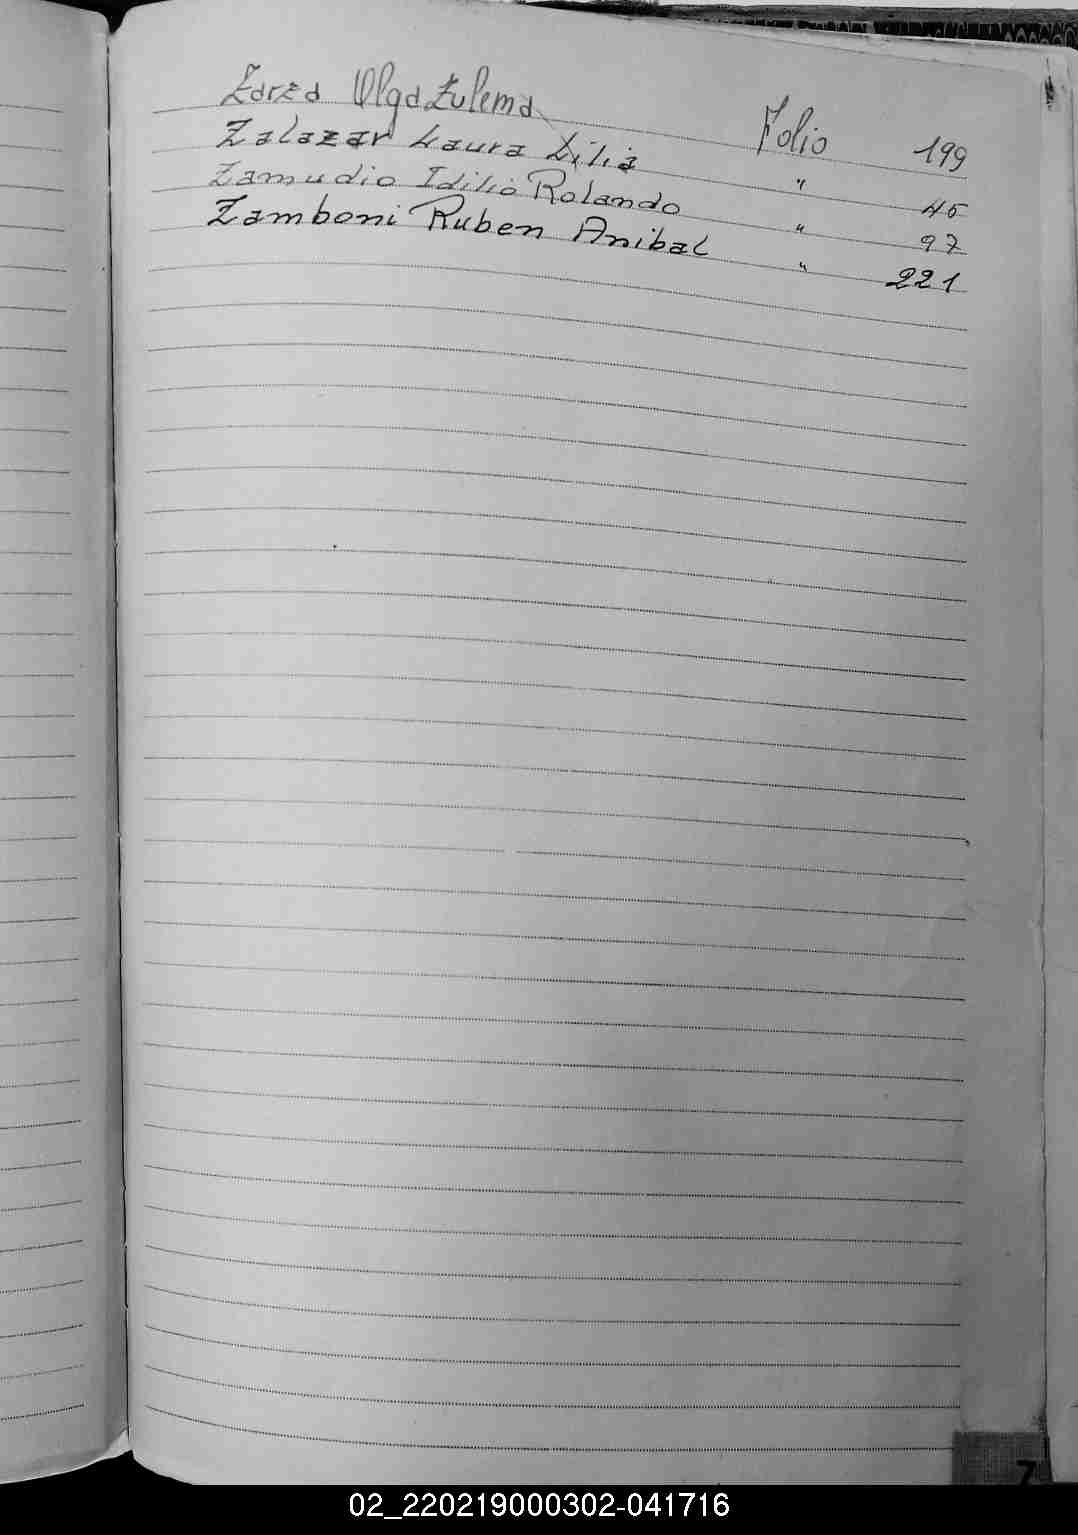 Zarza Olga Zulema Folio 199
Zalazar Laura Lilia " 45
Zamudio Idilio Rolando " 97
Zamboni Ruben Anibal " 221
Z
02_220219000302-041716